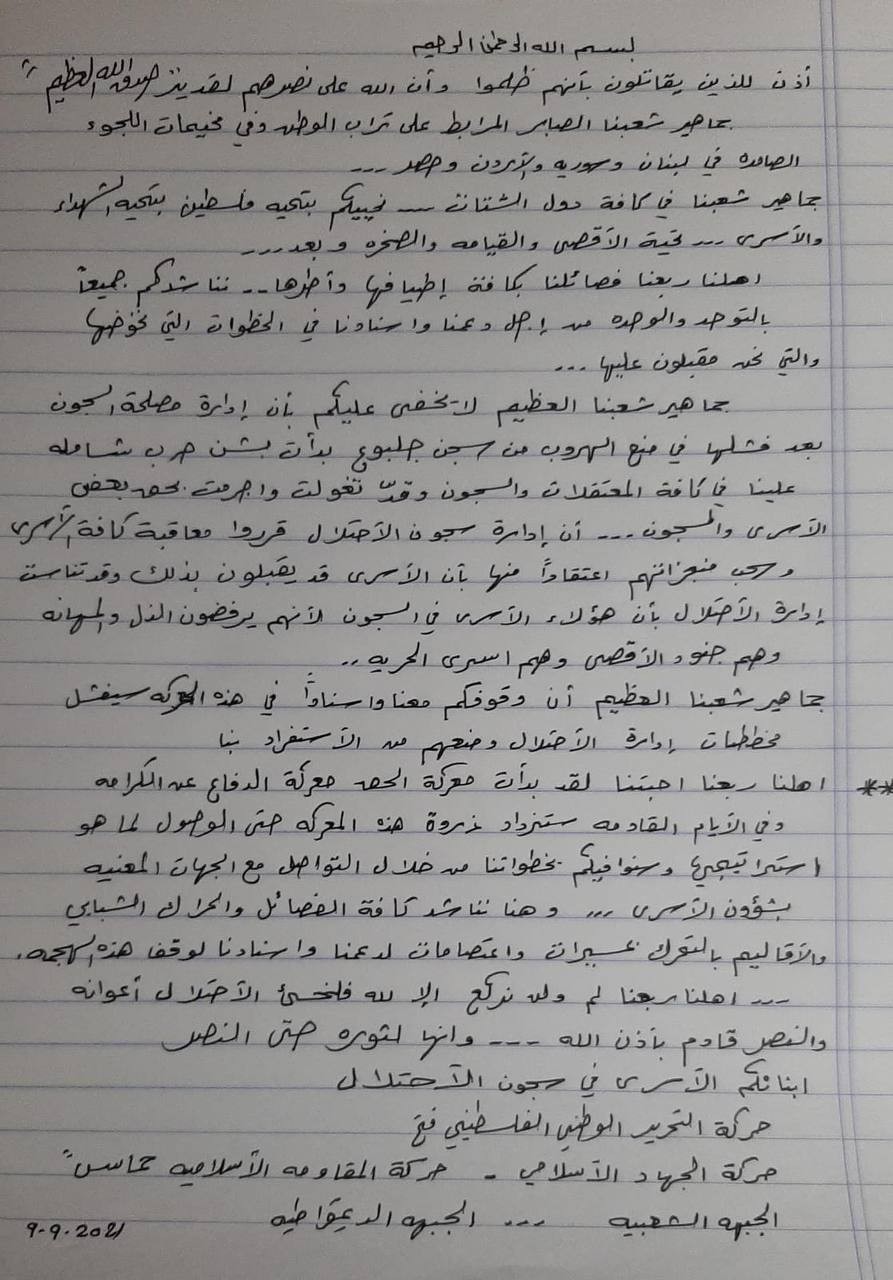 بسم الله الرحمن الرحيم
أذن للذين يقاتلون بأنهم ظلموا وأن الله على نصرهم لقدير صدق الله العظيم"
جماهير شعبنا الصابر المرابط على تراب الوطن وفي مخيمات اللجوء
الصامده في لبنان وسوريه والآردن ومصر ---
جماهير شعبنا في كافة دول الشتات --- نحييكم بتحيه فلسطين بتحيه الشهداء
والآسرى --- تحية الآقصى والقيامه والصخره وبعد ----
اهلنا ربعنا فصائلنا بكافة إطيافها وأطرها -- نناشدكم جميعاً
بالتوحد والوحده من إجل دعمنا واسنادنا في الخطوات التي نخوضها
والتي نحن مقبلون عليها ...
جماهير شعبنا العظيم لا يخفى عليكم بأن إدارة مصلحة السجون
بعد فشلها في منع الهروب من سجن جلبوع بدأت بشن حرب شامله
علينا في كافة المعتقلات والسجون وقدّ تغولت واجرمت بحق بعض
الآسرى والسجون --- أن إدارة سجون الآحتلال قرروا معاقبة كافة الآسرى
وسحب منجزاتهم اعتقاداً منها بأن الآسرى قد يقبلون بذلك وقد تناست
إدارة الآحتلال بأن هؤلاء الآسرى في السجون لآنهم يرفضون الذل والمهانه
وهم جنود الآقصى وهم اسرى الحريه ..
جماهير شعبنا العظيم أن وقوفكم معنا واسناداً في هذه المعركه سيفشل
مخططات إدارة الآحتلال ومنعهم من الآستفراد بنا
** اهلنا ربعنا احبتنا لقد بدأت معركة الحق معركة الدفاع عن الكرامه
وفي الآيام القادمه ستزداد ذروة هذه المعركه حتى الوصول لما هو
استراتيجيا وسنوافيكم بخطواتنا من خلال التواصل مع الجهات المعنيه
بشؤون الآسرى ,,, وهنا نناشد كافة الفصائل والحراك الشبابي
والآقاليم بالتحرك بمسيرات واعتصامات لدعمنا واسنادنا لوقف هذه الهجمه.
--- اهلنا ربعنا لم ولن نركع إلا لله فلخسئ الآحتلال أعوانه
والنصر قادم بأذن الله --- وانها لثوره حتى النصر
ابنائكم الآسرى في سجون الآحتلال
حركة التحرير الوطني الفلسطيني فتح
حركة الجهاد الآسلامي - حركة المقاومه الآسلاميه حماس"
الجبهه الشعبيه --- الجبهه الديمقراطيه
9-9-2021